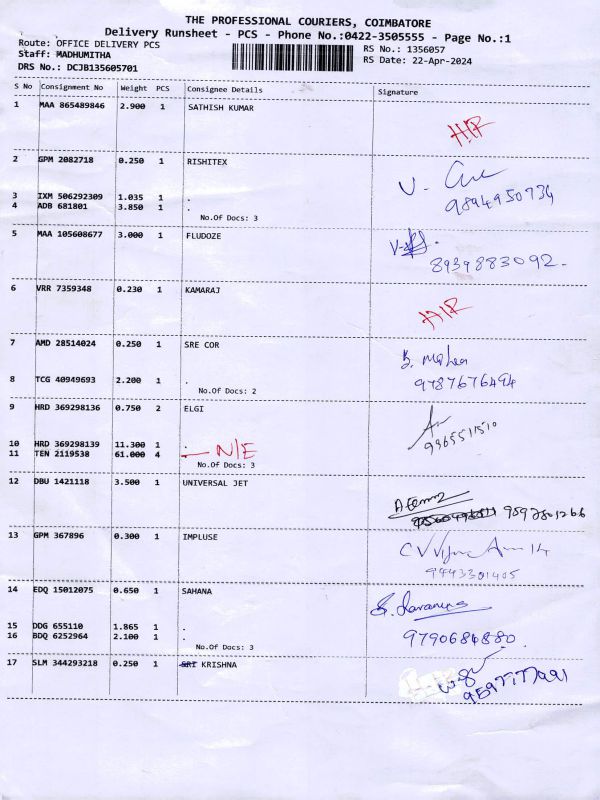 THE PROFESSIONAL COURIERS, COIMBATORE
Delivery Runsheet - PCS - Phone No.:0422-3505555 - Page No.:1
Route: OFFICE DELIVERY PCS
RS No.: 1356057
Staff: MADHUMITHA
RS Date: 22-Apr-2024
DRS No.: DCJB135605701
S No Consignment No Weight PCS Consignee Details Signature
1 MAA 865489846 2.900 1 SATHISH KUMAR
2 GPM 2082718 0.250 1 RISHITEX
9894950734
3 IXM 506292309 1.035 1 .
4 ADB 681801 3.850 1 .
No.Of Docs: 3
5 MAA 105608677 3.000 1 FLUDOZE
8939883092.
6 VRR 7359348 0.230 1 KAMARAJ
7 AMD 28514024 0.250 1 SRE COR
9787676494
8 TCG 40949693 2.200 1 .
No.Of Docs: 2
9 HRD 369298136 0.750 2 ELGI
9965511510
10 HRD 369298139 11.300 1 .
11 TEN 2119538 61.000 4 . — N/E
No.Of Docs: 3
12 DBU 1421118 3.500 1 UNIVERSAL JET
9597801266
13 GPM 367896 0.300 1 IMPLUSE
9443301405
14 EDQ 15012075 0.650 1 SAHANA
S. Saranya
15 DDG 655110 1.865 1 .
16 BDQ 6252964 2.100 1 .
9790684880
No.Of Docs: 3
17 SLM 344293218 0.250 1 SRI KRISHNA